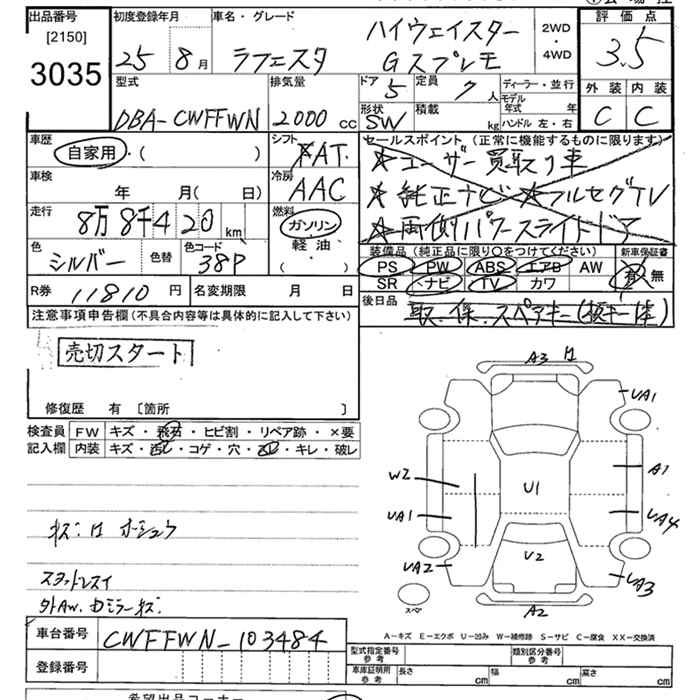 出品番号 初度登録年月 車名・グレード ハイウェイスター 2WD 評価点
[2150] 25年 8月 ラフェスタ Gスプレモ 4WD 3.5
3035 型式 排気量 ドア 5 定員 7人 ディーラー・並行 外装 内装
DBA-CWFFWN 2000cc 形状 SW 積載 kg モデル年式 年 ハンドル 左・右 C C
車歴 自家用・( ) シフト AT. セールスポイント (正常に機能するものに限ります)
★ユーザー買取り車
車検 年 月( 日) 冷房 AAC ★純正ナビ★フルセグTV
走行 8万8千420km 燃料 ガソリン 軽油・( ) ★両側パワースライドドア
色 シルバー 色替 色コード 38P 装備品 (純正品に限り○をつけてください) 新車保証書
PS PW ABS エアB AW 有・無
R券 11810円 名変期限 月 日 SR ナビ TV カワ
注意事項申告欄(不具合内容等は具体的に記入して下さい) 後日品 取.保.スペアキー
売切スタート
修復歴 有 [箇所 ]
検査員 FW キズ・飛石・ヒビ割・リペア跡・×要
記入欄 内装 キズ・汚レ・コゲ・穴・スレ・キレ・破レ
A3
UA1
W2 U1 A1
UA1 UA4
UA2 U2 UA3
スペア A2
スタットレスイ
外AW. ドミラーキズ
A−キズ E−エクボ U−凹み W−補修跡 S−サビ C−腐食 XX−交換済
車台番号 CWFFWN-103484
登録番号
型式指定番号 参考 類別区分番号 参考
車庫証明用 参考 長さ cm 幅 cm 高さ cm
希望出品コーナー